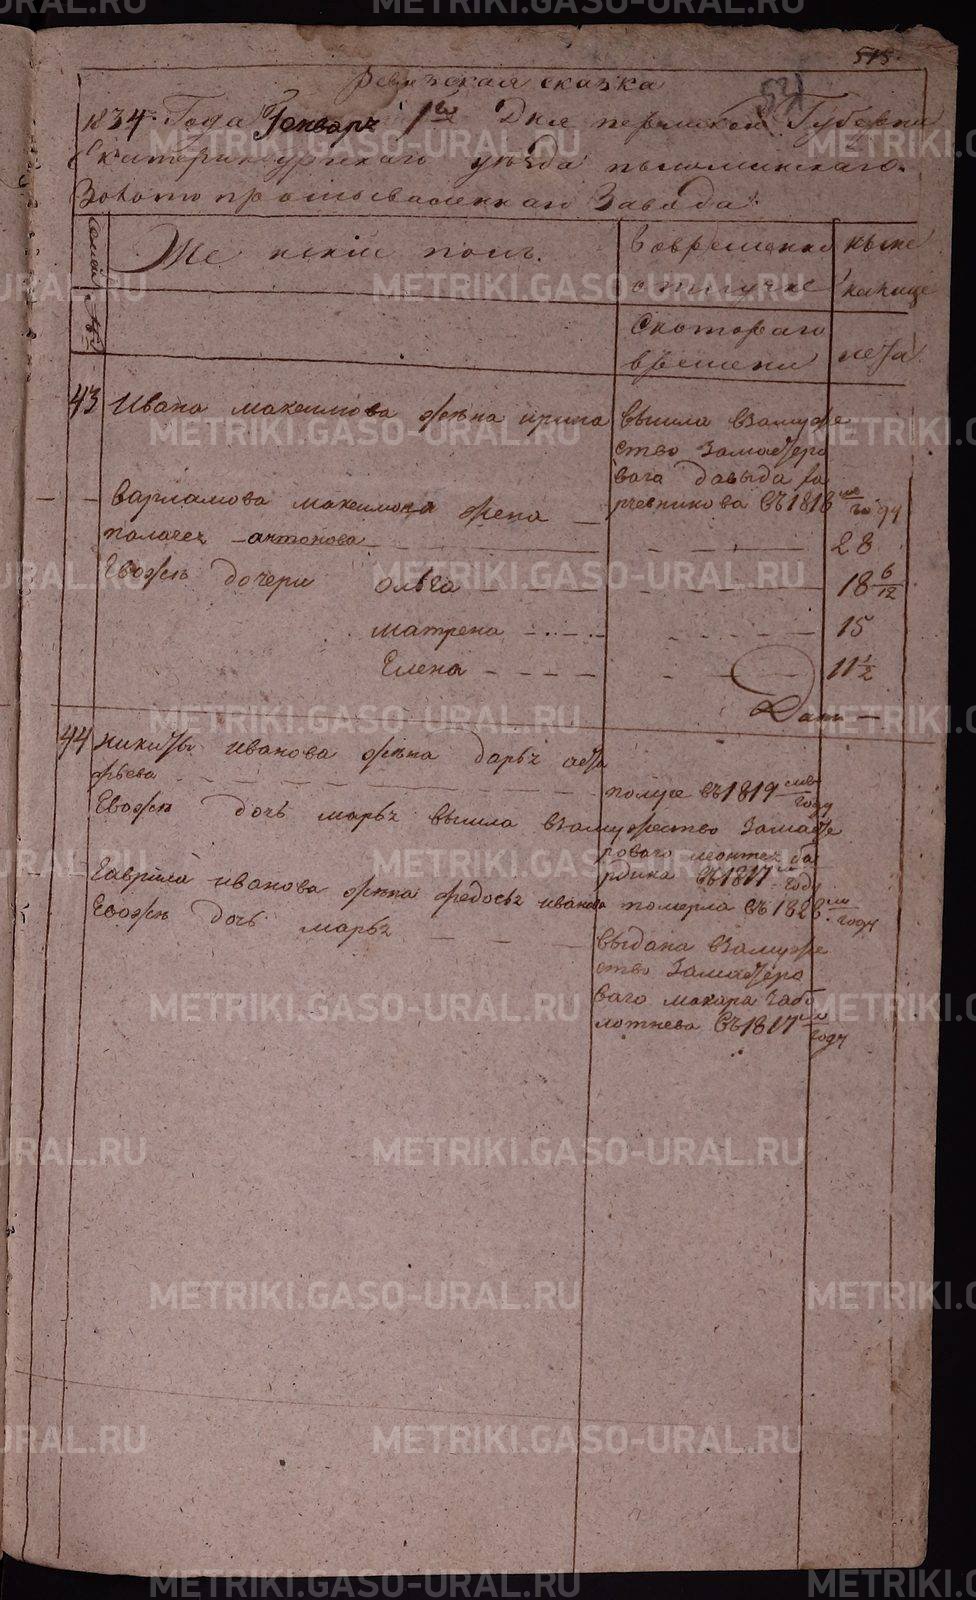 515.
521
Ревизская сказка
1834. Года Генваря 1го Дня пермской Губернии
Екатеринбургскаго уезда пышминскаго
Золотопромываленнаго Завода.
Семей №
Же нский полъ.
Вовременно
отлучке
ныне
налице
Скотораго
времени
лета
43 Ивана максимова жена ирина вышла взамуже
ство замастеро
ваго давыда
рчевникова въ 1818 году
варламова максимова жена
палагея антонова 28
Евоже дочери ольга 18 6/12
матрена 15
Елена 11 1/2
44 никиты иванова жена дарья
фьева
въ 1819 году
Евоже дочь марья вышла взамужество замасте
роваго ба
рдина въ 1817 году
Гаврила иванова жена федосья иванова померла въ 1828 году
Евоже дочь марья
выдана взамуже
ство замастеро
ваго макара забо
лотнева въ 1817 году
METRIKI.GASO-URAL.RU